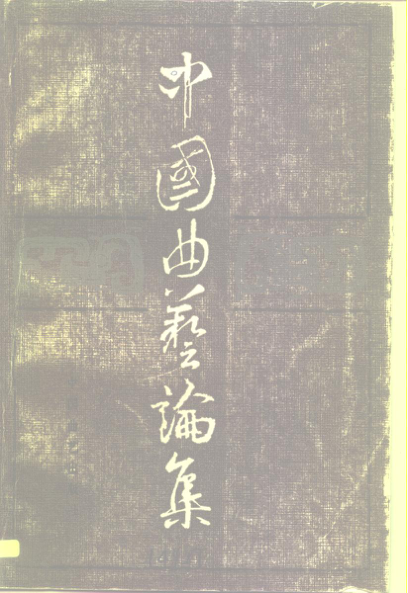 中國曲藝論集